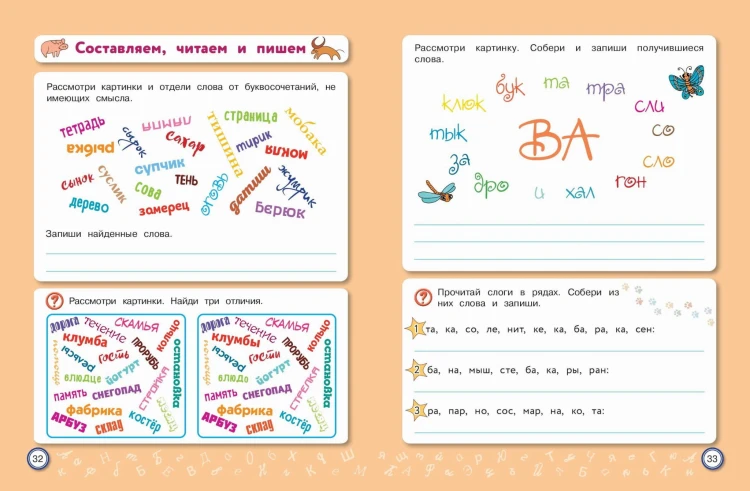 Составляем, читаем и пишем
Рассмотри картинки и отдели слова от буквосочетаний, не
имеющих смысла.
тетрадь
сырэк
страница
мобака
рыбка
сахар
тишина
тирик
супчик
сынок
суслик
сова
тень
жумрик
дерево
замерец
оговь
датиш
берюк
Запиши найденные слова.
Рассмотри картинки. Найди три отличия.
дорога
течение
скамья
кольцо
клумба
прорубь
остановка
рельсы
гость
помощь
блюдце
йогурт
стройка
память
снегопад
фабрика
арбуз
склад
костёр
дорога
течение
скамья
кольцо
клумбы
прорубь
остановка
рельсы
гости
помощь
блюдо
йогурт
стрелка
память
снегопад
фабрика
арбуз
склад
костёр
32
Рассмотри картинку. Собери и запиши получившиеся
слова.
бук
та
тра
клюк
сли
тык
ВА
со
за
сло
дро
и
хал
гон
Прочитай слоги в рядах. Собери из
них слова и запиши.
1 та, ка, со, ле, нит, ке, ка, ба, ра, ка, сен:
2 ба, на, мыш, сте, ба, ка, ры, ран:
3 ра, пар, но, сос, мар, на, ко, та:
33